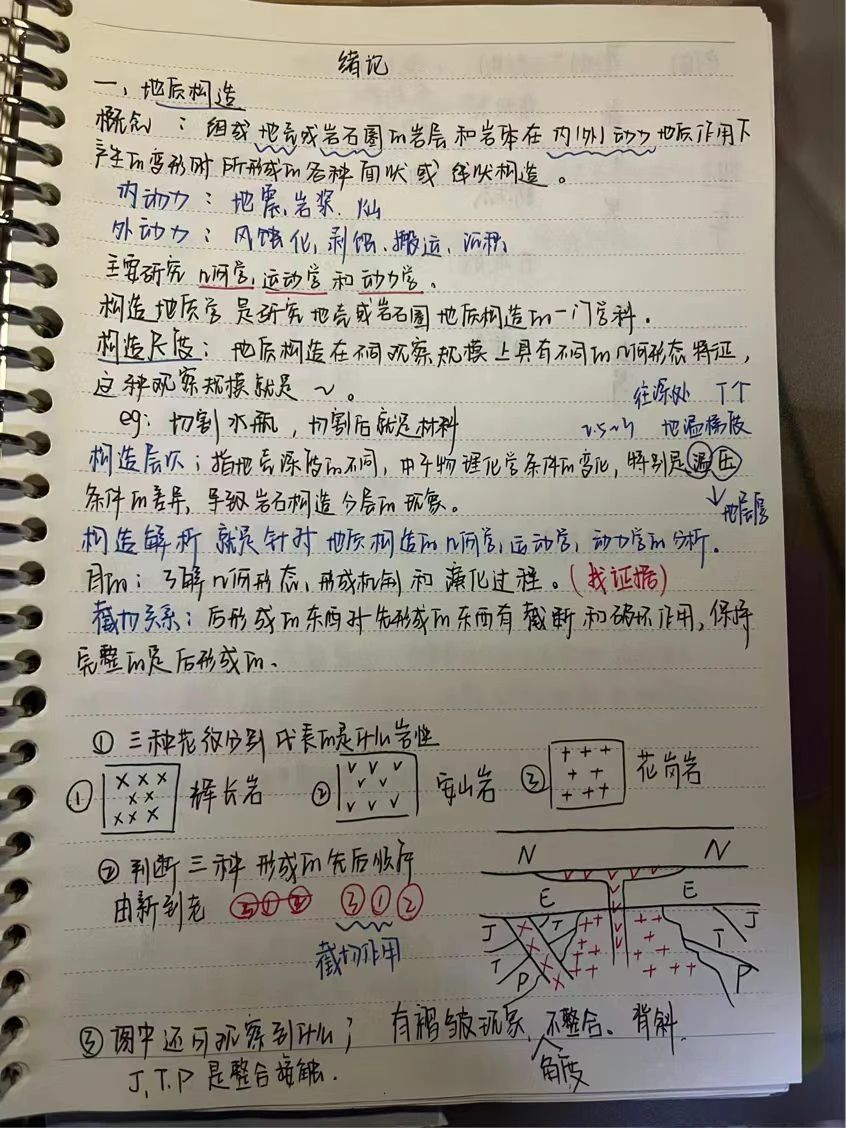 绪记
一、地质构造
概念：组成地壳或岩石圈的岩层和岩体在内(外)动力地质作用下
产生的变形时所形成的各种面状或线状构造。
内动力：地震、岩浆、
外动力：风蚀化、剥蚀、搬运、沉积、
主要研究几何学、运动学和动力学。
构造地质学是研究地壳或岩石圈地质构造的一门学科。
构造尺度：地质构造在不同观察规模上具有不同的几何形态特征，
这种观察规模就是～。
往深处 T个
eg：切割水瓶，切割后就是材料
地温梯度
构造层次：指地壳深度的不同，由于物理化学条件的变化，特别是温压
条件的差异，导致岩石构造分层的现象。
↓地层厚
构造解析就是针对地质构造的几何学、运动学、动力学的分析。
目的：了解几何形态、形成机制和演化过程。(找证据)
截切关系：后形成的东西对先形成的东西有截断和破坏作用，保持
完整的是后形成的、
① 三种花纹分别代表的是什么岩性
① 辉长岩 ② 安山岩 ③ 花岗岩
② 判断三种形成的先后顺序
由新到老 ③①②
截切作用
N N
E E
J T T P J T P
③ 图中还可观察到什么； 有褶皱现象、不整合、背斜.
角度
J、T、P是整合接触.